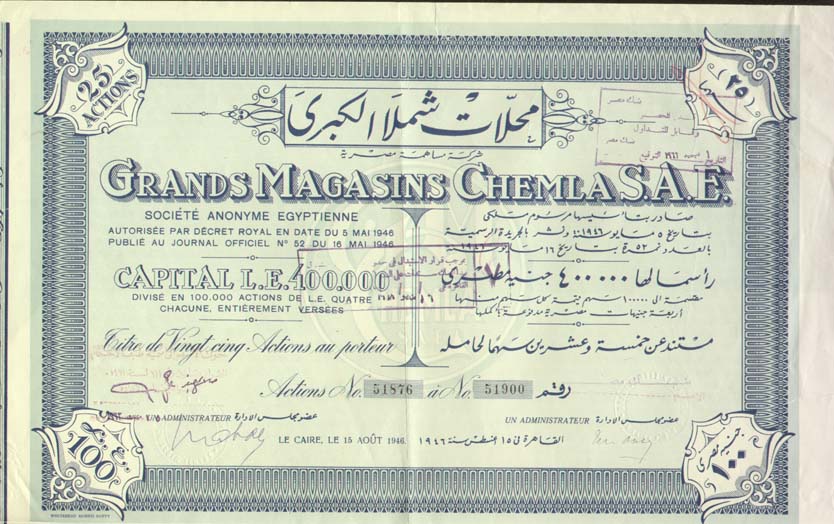 25
ACTIONS
(٢٥)
محلات شملا الكبرى
شركة مساهمة مصرية
GRANDS MAGASINS CHEMLA S.A.E.
SOCIÉTÉ ANONYME EGYPTIENNE
AUTORISÉE PAR DÉCRET ROYAL EN DATE DU 5 MAI 1946
PUBLIÉ AU JOURNAL OFFICIEL N° 52 DU 16 MAI 1946
صادر بتأسيسها مرسوم ملكى
بتاريخ ٥ مايو ١٩٤٦ ونشر بالجريدة الرسمية
بالعدد نمرة ٥٢ بتاريخ ١٦ مايو سنة ١٩٤٦
CAPITAL L.E. 400.000
DIVISÉ EN 100.000 ACTIONS DE L.E. QUATRE
CHACUNE, ENTIÈREMENT VERSÉES
رأسمالها ٤٠٠٠٠٠ جنيه مصرى
أربعة جنيهات مصرية مدفوعة بأكملها
Titre de Vingt cinq Actions au porteur
مستند عن خمسة وعشرين سهما لحامله
Actions No. 51876 à No. 51900 رقم
UN ADMINISTRATEUR عضو مجلس الادارة
UN ADMINISTRATEUR عضو مجلس الادارة
LE CAIRE, LE 15 AOÛT 1946.
القاهرة فى ١٥ اغسطس سنة ١٩٤٦
L.E.
100
١٠٠
بنك مصر